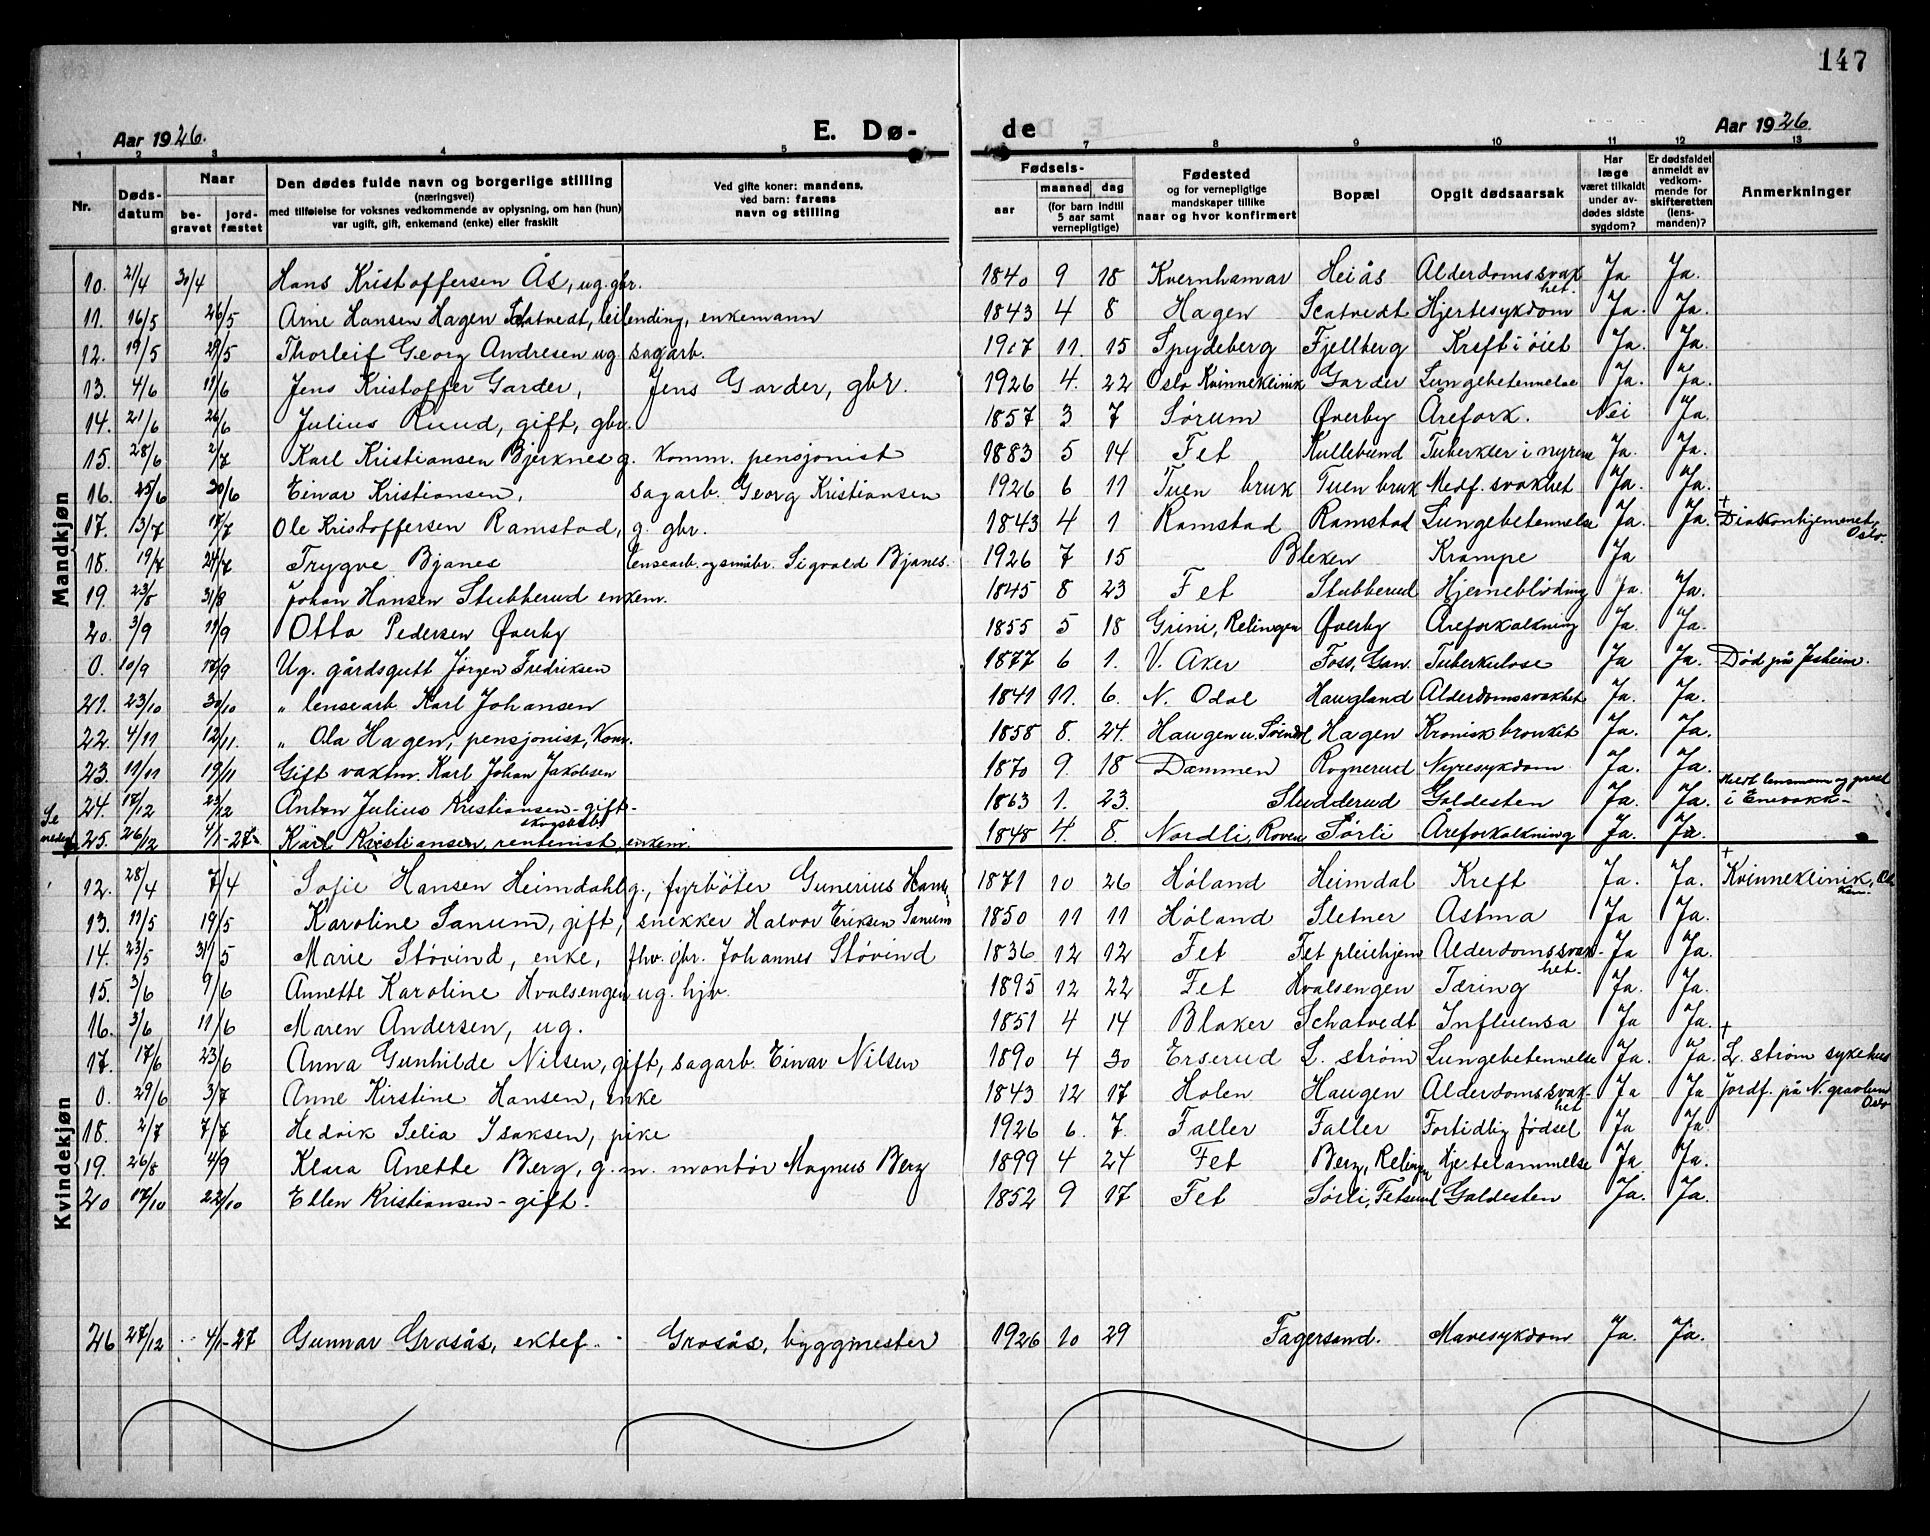 147
Aar 1926. E. Dø- de Aar 1926.
1 2 3 4 5 7 8 9 10 11 12 13
Nr. Døds-datum Naar be-gravet jord-fæstet Den dødes fulde navn og borgerlige stilling (næringsvei) med tilføielse for voksnes vedkommende av oplysning, om han (hun) var ugift, gift, enkemand (enke) eller fraskilt Ved gifte koner: mandens, ved barn: farens navn og stilling Fødsels- aar maaned dag (for barn indtil 5 aar samt vernepligtige) Fødested og for vernepligtige mandskaper tillike naar og hvor konfirmert Bopæl Opgit dødsaarsak Har læge været tilkaldt under av-dødes sidste sygdom? Er dødsfaldet anmeldt av vedkom-mende for skifteretten (lens-manden)? Anmerkninger
Mandkjøn
10. 21/4 30/4 Hans Kristoffersen Ås, ug. gbr. 1840 9 18 Kvernhamar Heiås Alderdomssvakhet. Ja Ja.
11. 16/5 26/5 Arne Hansen Hagen Scatvedt, leilending, enkemann 1843 4 8 Hagen Scatvedt Hjertesykdom Ja. Ja.
12. 19/5 29/5 Thorleif Georg Andresen ug. sagarb. 1907 11. 15 Spydeberg Fjellberg Kreft i øiet Ja. Ja.
13. 4/6 11/6 Jens Kristoffer Garder, Jens Garder, gbr. 1926 4. 22 Oslo Kvinneklinik Garder Lungebetennelse Ja. Ja.
14. 21/6 26/6 Julius Ruud, gift, gbr. 1857 3 7 Sørum Øverby Årefork. Nei Ja.
15. 28/6 2/7 Karl Kristiansen Bjerknes g. komm. pensjonist 1883 5 14 Fet Kullebund Tuberkler i nyrene Ja. Ja.
16. 25/6 30/6 Einar Kristiansen, sagarb. Georg Kristiansen 1926 6 11 Tuen bruk Tuen bruk Medf. svakhet Ja. Ja.
17. 13/7 17/7 Ole Kristoffersen Ramstad, g. gbr. 1843 4 1 Ramstad Ramstad Lungebetennelse Ja. Ja. + Diakonhjemmet, Oslo.
18. 19/7 24/7 Trygve Bjanes lensearb. og småbr. Sigvald Bjanes. 1926 7 15 Bleken Krampe Ja
19. 23/8 31/8 Johan Hansen Stubberud enkem. 1845 8 23 Fet Stubberud Hjerneblødning Ja. Ja.
20. 3/9 11/9 Otto Pedersen Øverby 1855 5 18 Grini, Relingen Øverby Åreforkalkning Ja. Ja.
0. 10/9 17/9 Ug. gårdsgutt Jörgen Fredriksen 1877 6 1. V. Aker Foss, Gan. Tuberkulose Ja Ja. Død på Jesheim.
21. 23/10 30/10 „ lensearb Karl Johansen 1841 11. 6. N. Odal Haugland Alderdomssvakhet Ja. Ja.
22. 4/11 12/11. „ Ola Hagen, pensjonist, Kom. 1858 8. 24. Haugen u. Hagen Kronisk bronkit Ja. Ja.
23. 11/11 19/11 Gift vaktm. Karl Johan Jakobsen 1870 9. 18 Dammen Rognerud Nyresykdom Ja. Ja.
24. 17/12 23/12 Anton Julius Kristiansen - gift - skogsarb. 1863 1. 23. Studderud Galdesten Ja. Ja. Meldt lensmann og prest i Enebakk -
Se nedenf. 25. 26/12 4/1-27 Karl Kristiansen, rentenist, enkem. 1848 4. 8. Nordli, Sørli Åreforkalkning Ja. Ja.
Kvindekjøn
12. 28/4 7/4 Sofie Hansen Heimdahl g., fyrbøter Gunerius Hansen 1871 10 26 Høland Heimdal Kreft Ja. Ja. + Kvinneklinik,
13. 11/5 19/5 Karoline Sanum, gift, snekker Halvor Eriksen Sanum 1850 11 11 Høland Sletner Astma Ja Ja.
14. 23/5 31/5 Marie Støvind, enke, fhv. gbr. Johannes Støvind 1836 12 12 Fet Fet pleiehjem Alderdomssvakhet. Ja Ja.
15. 3/6 9/6 Annette Karoline Hvalsengen ug. hjv. 1895 12 22 Fet Hvalsengen Tæring Ja. Ja.
16. 3/6 11/6 Maren Andersen, ug. 1851 4 14 Blaker Schatvedt Influensa Ja Ja.
17. 17/6 23/6 Anna Gunhilde Nilsen, gift, sagarb. Einar Nilsen 1890 4 30 Erserud L. strøm Lungebetennelse Ja. Ja. + L. strøm sykehus
0. 29/6 3/7 Anne Kirstine Hansen, enke 1843 12 17 Holen Haugen Alderdomssvakhet Ja Ja Jordf. på N. gravlund Oslo
18. 2/7 7/7 Hedvik Selia Isaksen, pike 1926 6. 7. Faller Faller Fortidlig fødsel Ja Ja.
19. 26/8 4/9 Klara Anette Berg, g. m. montör Magnus Berg 1899 4 24 Fet Berg, Relingen Hjertelammelse Ja Ja.
20 17/10 22/10 Ellen Kristiansen - gift. 1852 9 17 Fet Sørli, Fetsund Galdesten Ja. Ja.
26 27/12 4/1-27 Gunnar Grasås, ektef. - Grasås, byggmester 1926 10 29 Fagersand. Mavesykdom Ja. Ja.